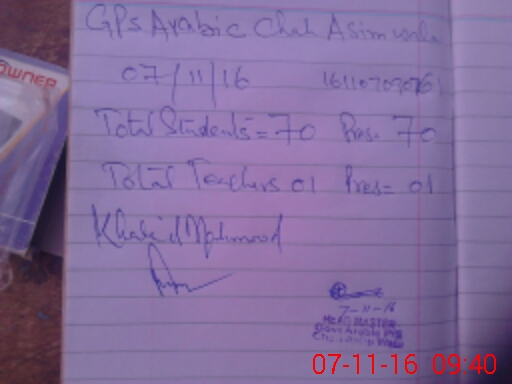 GPS Arabic Chah Asim wala
07/11/16
Total Students = 70 Pres = 70
Total Teachers 01 Pres = 01
Khalid Mahmood
7-11-16
HEAD MASTER
OWNER
07-11-16 09:40